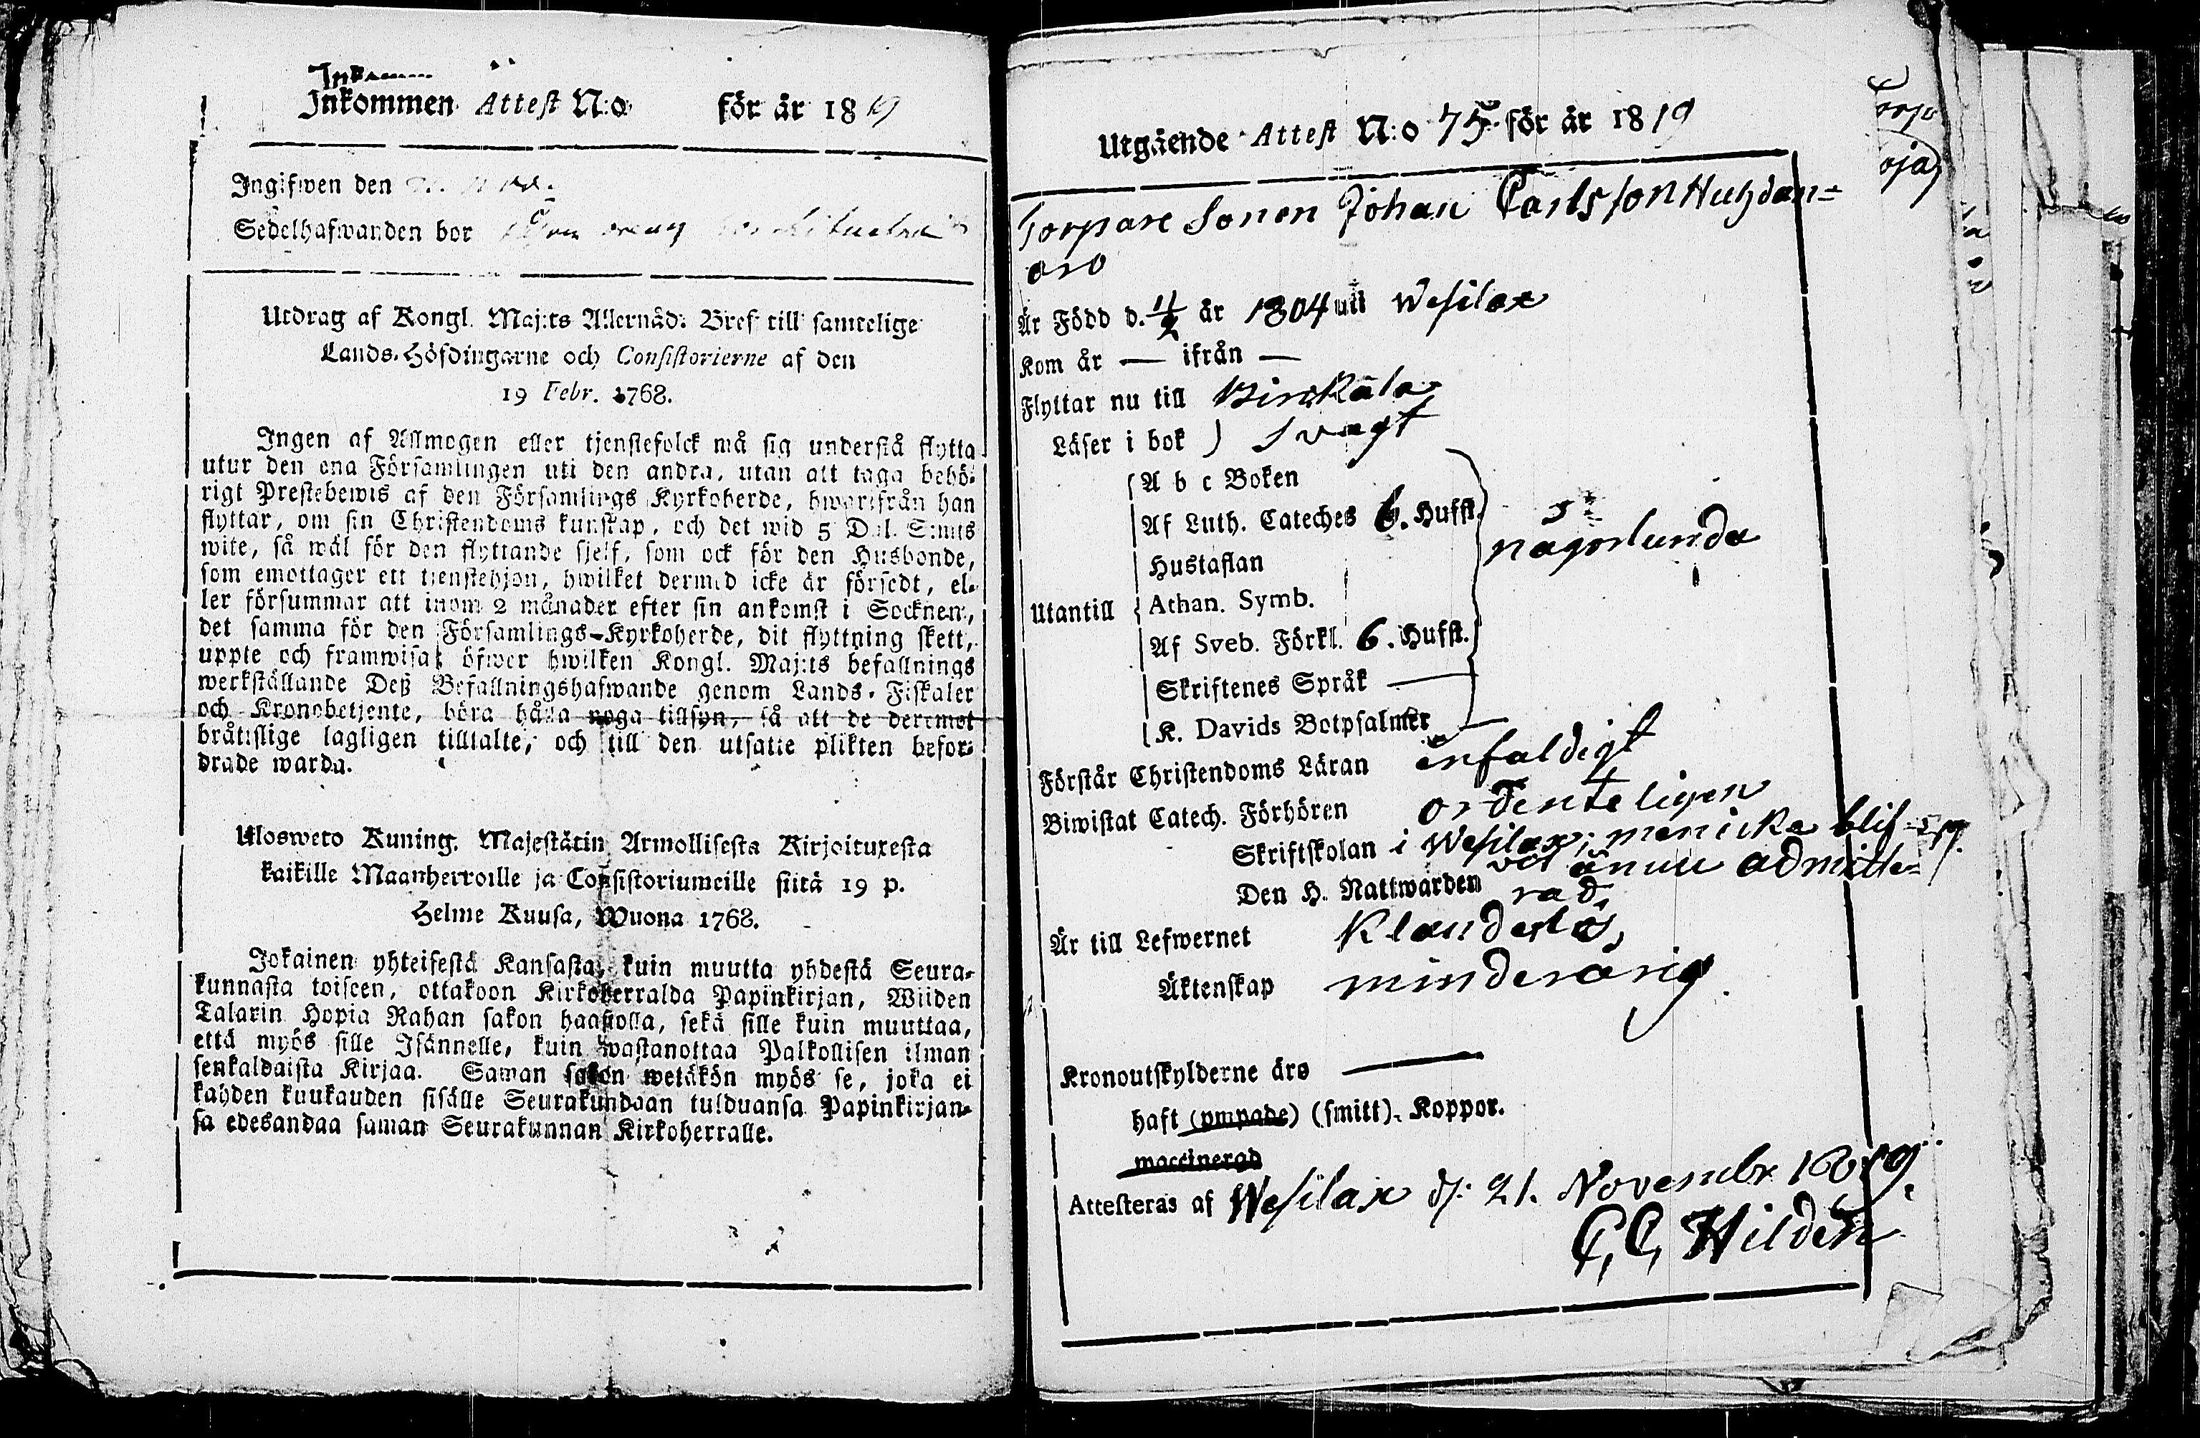 Inkommen Attest N:o för år 1819
Ingifwen den
Sedelhafwanden bor
Utdrag af Kongl. Maj:ts Allernåd: Bref till samtelige
Lands-Höfdingarne och Consistorierne af den
19 Febr. 1768.
Ingen af Allmogen eller tjenstefolck må sig understå flytta
utur den ena Församlingen uti den andra, utan att taga behö-
rigt Prestebewis af den Församlings Kyrkoherde, hwarifrån han
flyttar, om sin Christendoms kunskap, och det wid 5 Dal. S:mts
wite, så wäl för den flyttande sjelf, som ock för den Husbonde,
som emottager ett tjenstehjon, hwilket dermed icke är försedt, el-
ler försummar att inom 2 månader efter sin ankomst i Socknen,
det samma för den Församlings-Kyrkoherde, dit flyttning skett,
uppte och framwisa; öfwer hwilken Kongl. Maj:ts befallnings
werkställande Deß Befallningshafwande genom Lands-Fiskaler
och Kronobetjente, böra hålla noga tillsyn, så att de deremot
bråttslige lagligen tilltalte, och till den utsatte plikten befor-
drade warda.
Ulosweto Kuning. Majestätin Armollisesta Kirjoituxesta
kaikille Maanherroille ja Consistoriumeille siitä 19 p.
Helme Kuusa, Wuona 1768.
Jokainen yhteisestä Kansasta, kuin muutta yhdestä Seura-
kunnasta toiseen, ottakoon Kirkoherralda Papinkirjan, Wiiden
Talarin Hopia Rahan sakon haastolla, sekä sille kuin muuttaa,
että myös sille Isännelle, kuin wastanottaa Palkollisen ilman
senkaldaista Kirjaa. Saman sakon wetäkön myös se, joka ei
kahden kuukauden sisälle Seurakundaan tulduansa Papinkirjan-
sa edesandaa saman Seurakunnan Kirkoherralle.
Utgående Attest N:o 75 för år 1819
Torpare Sonen Johan Carlsson
Är Född d. 11/2 år 1804 uti Wesilax
Kom år — ifrån —
Flyttar nu till Birckala
Läser i bok ) svagt
A b c Boken
Af Luth. Cateches 6. Hufst.
någorlunda
Hustaflan
Utantill Athan. Symb.
Af Sveb. Förkl. 6. Hufst.
Skriftenes Språk —
K. Davids Botpsalmer —
Förstår Christendoms Läran enfaldigt
Biwistat Catech. Förhören ordenteligen
Skriftskolan i Wesilax, men icke blif-
Den H. Nattwarden vit ännu admitte-
rad.
Är till Lefwernet Klanderlös,
Äktenskap minderårig
Kronoutskylderne äro —
haft (ympade) (smitt). Koppor.
waccinerad
Attesteras af Wesilax d. 21. Novembr 1819.
C, C, Hildén